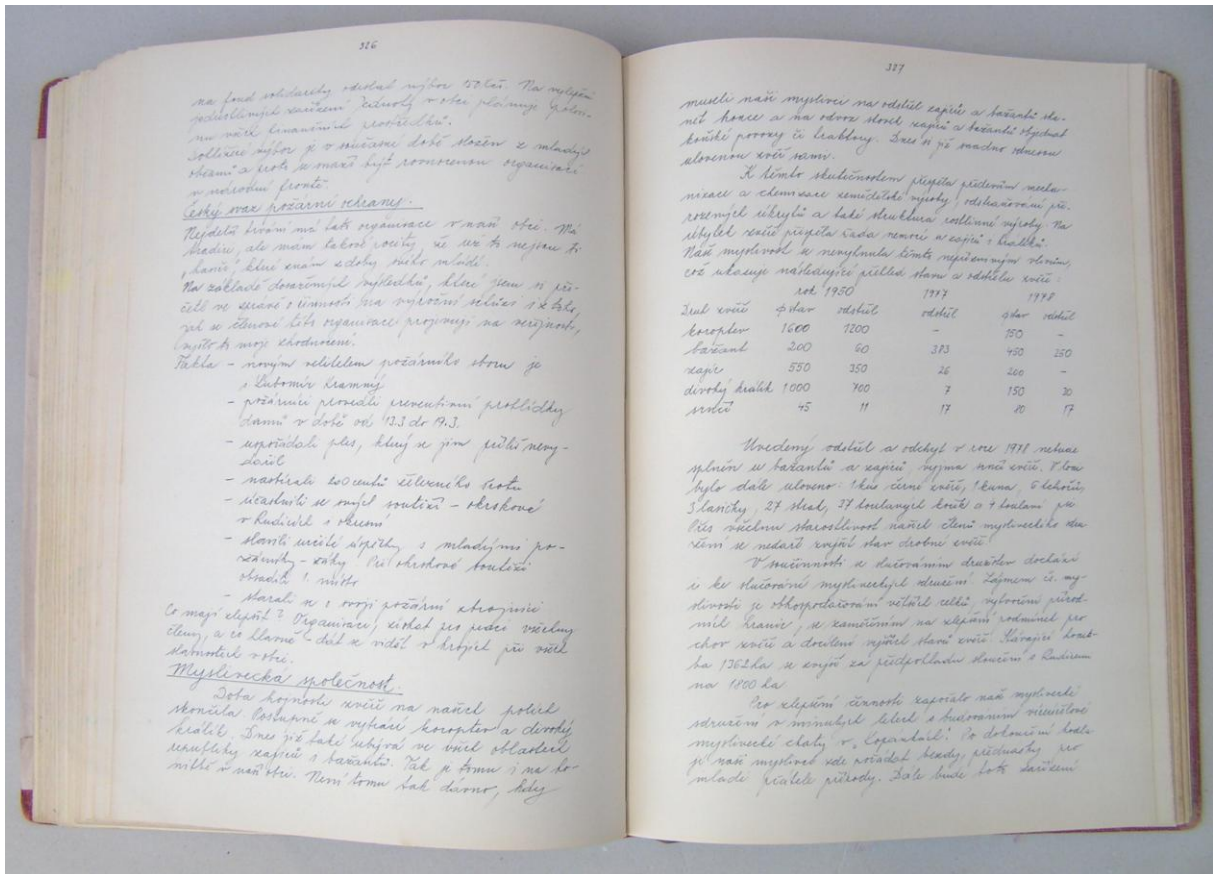 326
na fond solidarity odeslal výbor 150 Kčs. Na vylepšení
jednotlivých zařízení Jednoty v obci plánuje polovi-
nu všech finančních prostředků.
výbor je v současné době složen z mladých
občanů a proto se snaží být rovnocenou organisací
v národní frontě.
Český svaz požární ochrany.
Nejdelší trvání má tato organisace v naší obci. Má
tradice, ale mám takové pocity, že už to nejsou ti
„hasiči", které znám z doby svého mládí.
Na základě dosažených výsledků, které jsem si pře-
četl ve zprávě o činnosti na výroční schůzi i z toho,
jak se členové této organisace projevují na veřejnosti,
vyšlo to moje zhodnocení.
Fakta - novým velitelem požárního sboru je
s. Lubomír Kramný
- požárníci provedli preventivní prohlídky
domů v době od 13.3 do 19.3.
- uspořádali ples, který se jim příliš nevy-
dařil
- nasbírali 200 centů železného šrotu
- účastnili se svých soutěží - okrskové
v Rudicích s okresní
- slavili určité úspěchy s mladými po-
žárníky - žáky. Při okrskové soutěži
obsadili 1. místo
- starali se o svoji požární zbrojnici
Co mají zlepšit? Organisaci, získat pro práci všechny
členy, a co hlavně - dát se vidět v krojích při všech
slavnostech v obci.
Myslivecká společnost.
Doba hojnosti zvěře na našich polích
skončila. Postupně se vytrácí koroptev a divoký
králík. Dnes již také ubývá ve všech oblastech
republiky zajíců i bažantů. Tak je tomu i na ho-
nitbě v naší obci. Není tomu tak dávno, kdy
327
museli naši myslivci na odstřel zajíců a bažantů sko-
nět honce a na odvoz stovek zajíců a bažantů objednat
koňské povozy či traktory. Dnes si již snadno odnesou
ulovenou zvěř sami.
K těmto skutečnostem přispěla především mecha-
nizace a chemizace zemědělské výroby, odstraňování při-
rozených úkrytů a také struktura rostlinné výroby. Na
úbytek zvěře přispěla řada nemocí u zajíců i králíků.
Naše myslivost se nevyhnula těmto nepříznivým vlivům,
což ukazuje následující přehled stavu a odstřelu zvěře:
rok 1950 1977 1978
Druh zvěře ϕ stav odstřel odstřel ϕ stav odstřel
koroptev 1600 1200 - 150 -
bažant 200 60 383 450 250
zajíc 550 350 26 200 -
divoký králík 1000 700 7 150 20
srnčí 45 11 17 80 17
Uvedený odstřel a odchyt v roce 1978 nebude
splněn u bažantů a zajíců, vyjma srnčí zvěře. V tom
bylo dále uloveno: 1 kus černé zvěře, 1 kuna, 6 tchořů,
3 lasičky, 27 strak, 37 toulavých koček a 4 toulaví psi
Přes všechnu starostlivost našich členů mysliveckého sdru-
žení se nedaří zvýšit stav drobné zvěře.
V součinnosti se slučováním družstev dochází
i ke slučování mysliveckých sdružení. Zájmem čs. my-
slivosti je obhospodařování větších celků, vytvoření přírod-
ních hranic, se zaměřením na zlepšení podmínek pro
chov zvěře a docílení vyšších stavů zvěře. Stávající honit-
ba 1362 ha se zvýší za předpokladu sloučení s Rudicemi
na 1800 ha
Pro zlepšení činnosti započalo naše myslivecké
sdružení v minulých letech s budováním víceúčelové
myslivecké chaty v „Kopankách". Po dokončení hodlá-
jí naši myslivci zde pořádat besedy, přednášky pro
mladé přátele přírody. Dále bude toto zařízení